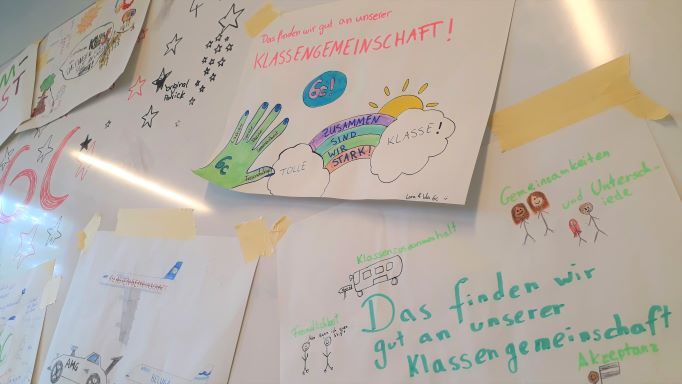 Das finden wir gut an unserer
KLASSENGEMEINSCHAFT!
6c!
6c
TOLLE
ZUSAMMEN
SIND
WIR
STARK!
KLASSE!
original
6c
Klassenzusammenhalt
Gemeinsamkeiten
und Untersch-
iede
Freundlichkeit
Das finden wir
gut an unserer
Klassengemeinschaft
Akzeptanz
KLASSENGEMEINSCHAFT
AMG
BELUGA